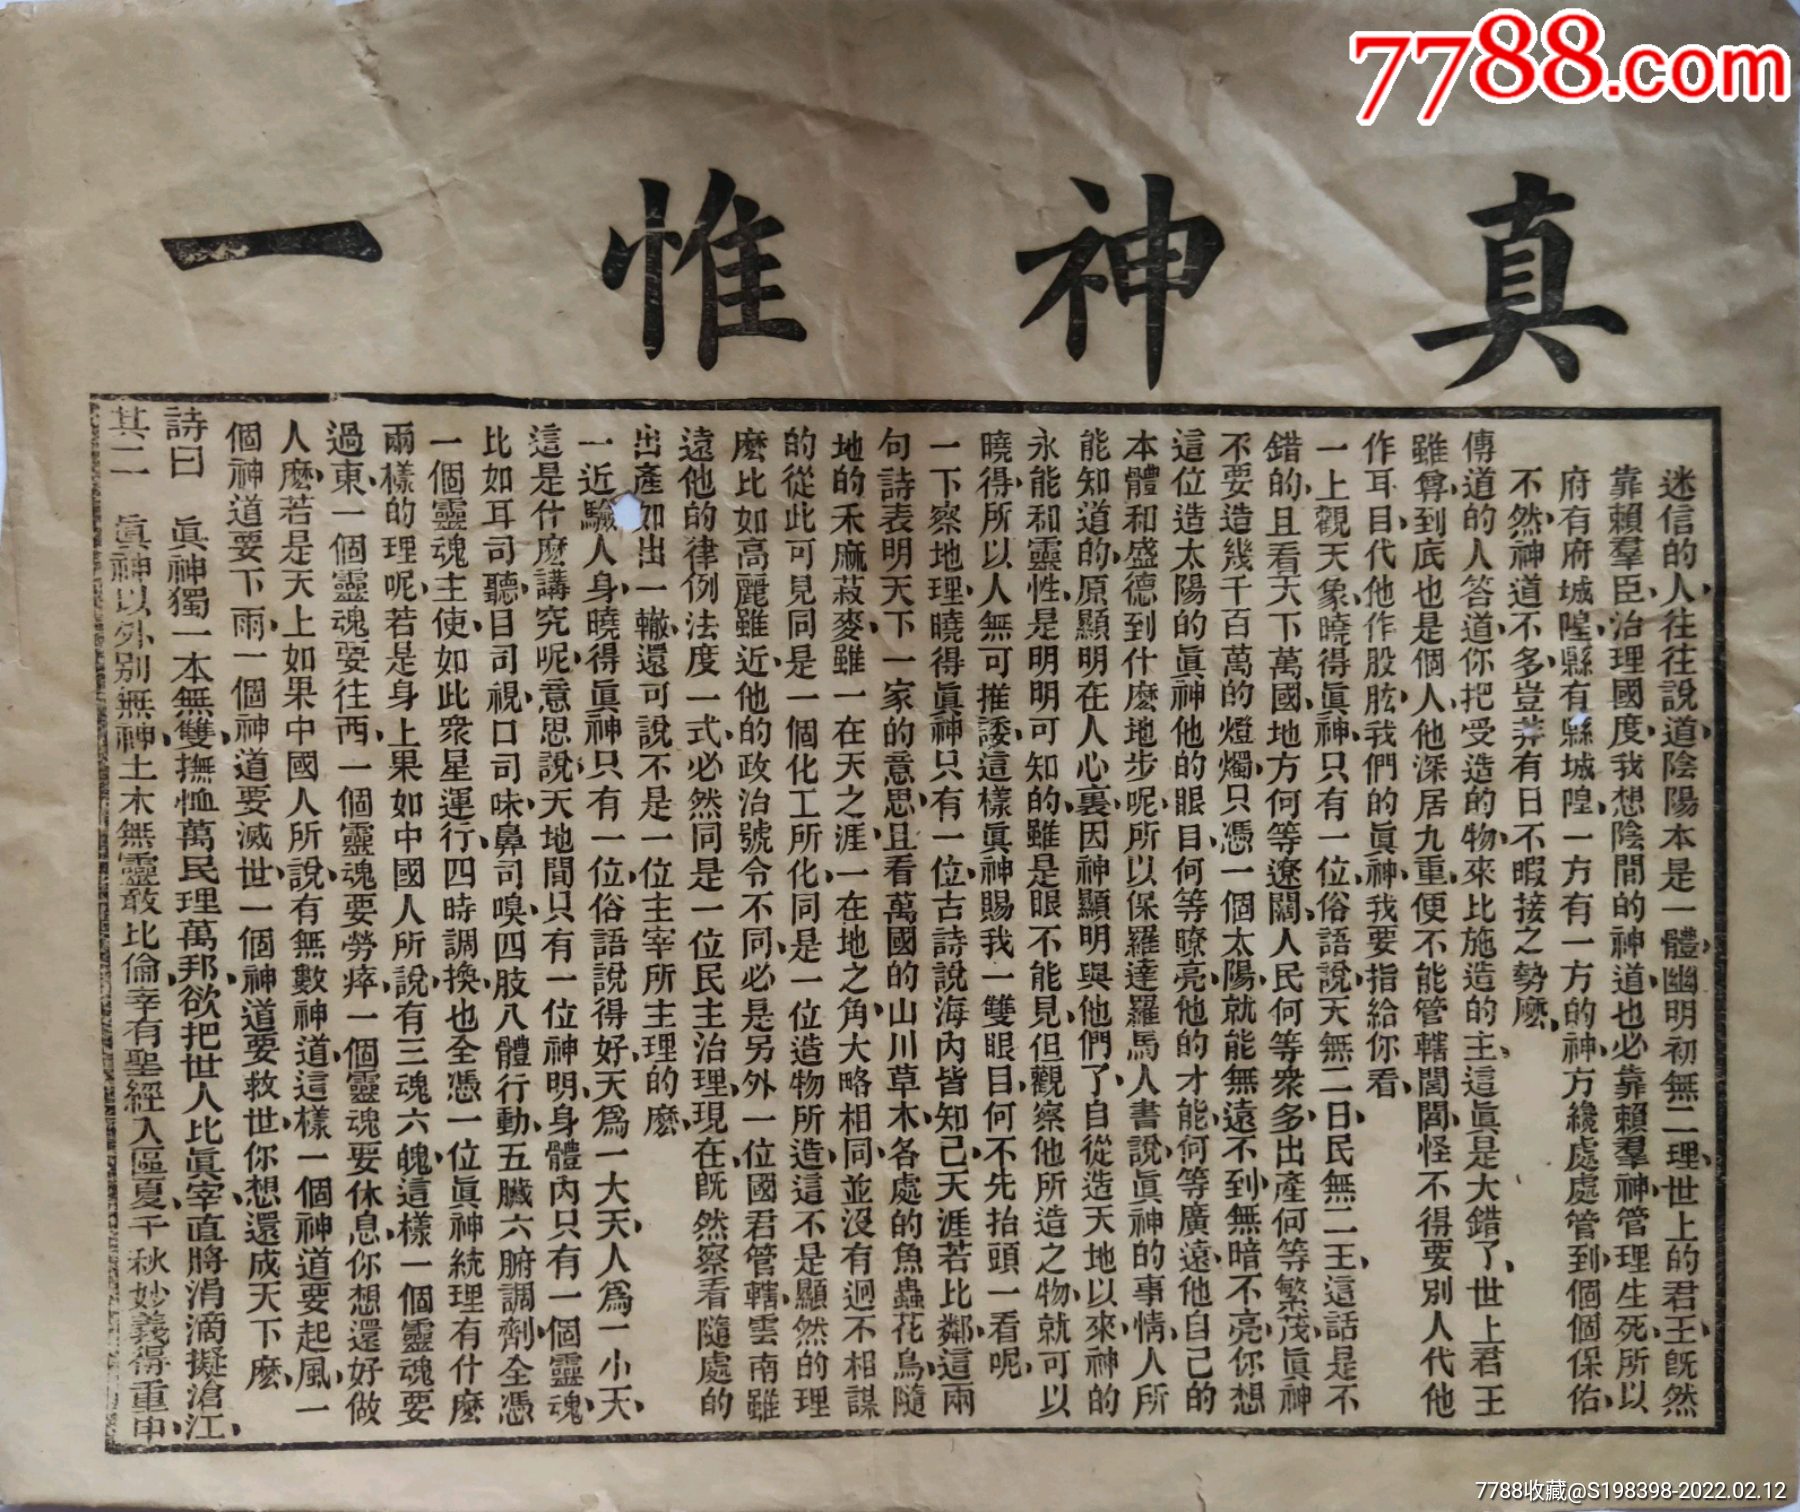 7788.com
真神惟一
迷信的人、往往說道、陰陽本是一體、幽明初無二理、世上的君王、旣然
靠賴羣臣、治理國度、我想陰間的神道、也必靠賴羣神、管理生死、所以
府有府城隍、縣有縣城隍、一方有一方的神、方纔處處管到、個個保佑、
不然、神道不多、豈非有日不暇接之勢麽、
傳道的人答道、你把受造的物、來比施造的主、這眞是大錯了、世上君王
雖尊、到底也是個人、他深居九重、便不能管轄閭閻、怪不得要別人代他
作耳目、代他作股肱、我們的眞神、我要指給你看、
一上觀天象、曉得眞神、只有一位、俗語說、天無二日、民無二王、這話是不
錯的、且看天下萬國、地方何等遼闊、人民何等衆多、出產何等繁茂、眞神
不要造幾千百萬的燈燭、只憑一個太陽、就能無遠不到、無暗不亮、你想
這位造太陽的眞神、他的眼目、何等瞭亮、他的才能、何等廣遠、他自己的
本體和盛德、到什麽地步呢、所以保羅達羅馬人書說、眞神的事情、人所
能知道的、原顯明在人心裏、因神顯明與他們了、自從造天地以來、神的
永能和靈性、是明明可知的、雖是眼不能見、但觀察他所造之物、就可以
曉得、所以人無可推諉、這樣眞神賜我一雙眼目、何不先抬頭一看呢、
一下察地理、曉得眞神只有一位、古詩說、海內皆知己、天涯若比鄰、這兩
句詩、表明天下一家的意思、且看萬國的山川草木、各處的魚蟲花鳥、隨
地的禾麻菽麥、雖一在天之涯、一在地之角、大略相同、並沒有迥不相謀
的、從此可見同是一個化工所化、同是一位造物所造、這不是顯然的理
麽、比如高麗雖近、他的政治號令不同、必是另外一位國君管轄、雲南雖
遠、他的律例法度一式、必然同是一位民主治理、現在旣然察看隨處的
出產、如出一轍、還可說不是一位主宰所主理的麽、
一近驗人身、曉得眞神只有一位、俗語說得好、天爲一大天、人爲一小天、
這是什麽講究呢、意思說、天地間只有一位神明、身體內只有一個靈魂、
比如耳司聽、目司視、口司味、鼻司嗅、四肢八體行動、五臟六腑調劑、全憑
一個靈魂主使、如此衆星運行、四時調換、也全憑一位眞神統理、有什麽
兩樣的理呢、若是身上、果如中國人所說、有三魂六魄、這樣、一個靈魂要
過東、一個靈魂要往西、一個靈魂要勞瘁、一個靈魂要休息、你想還好做
人麽、若是天上、如果中國人所說、有無數神道、這樣、一個神道要起風、一
個神道要下雨、一個神道要滅世、一個神道要救世、你想還成天下麽、
詩曰　眞神獨一本無雙、撫恤萬民理萬邦、欲把世人比眞宰、直將涓滴擬滄江、
其二　眞神以外別無神、土木無靈敢比倫、幸有聖經入區夏、千秋妙義得重申、
7788收藏@S198398-2022.02.12